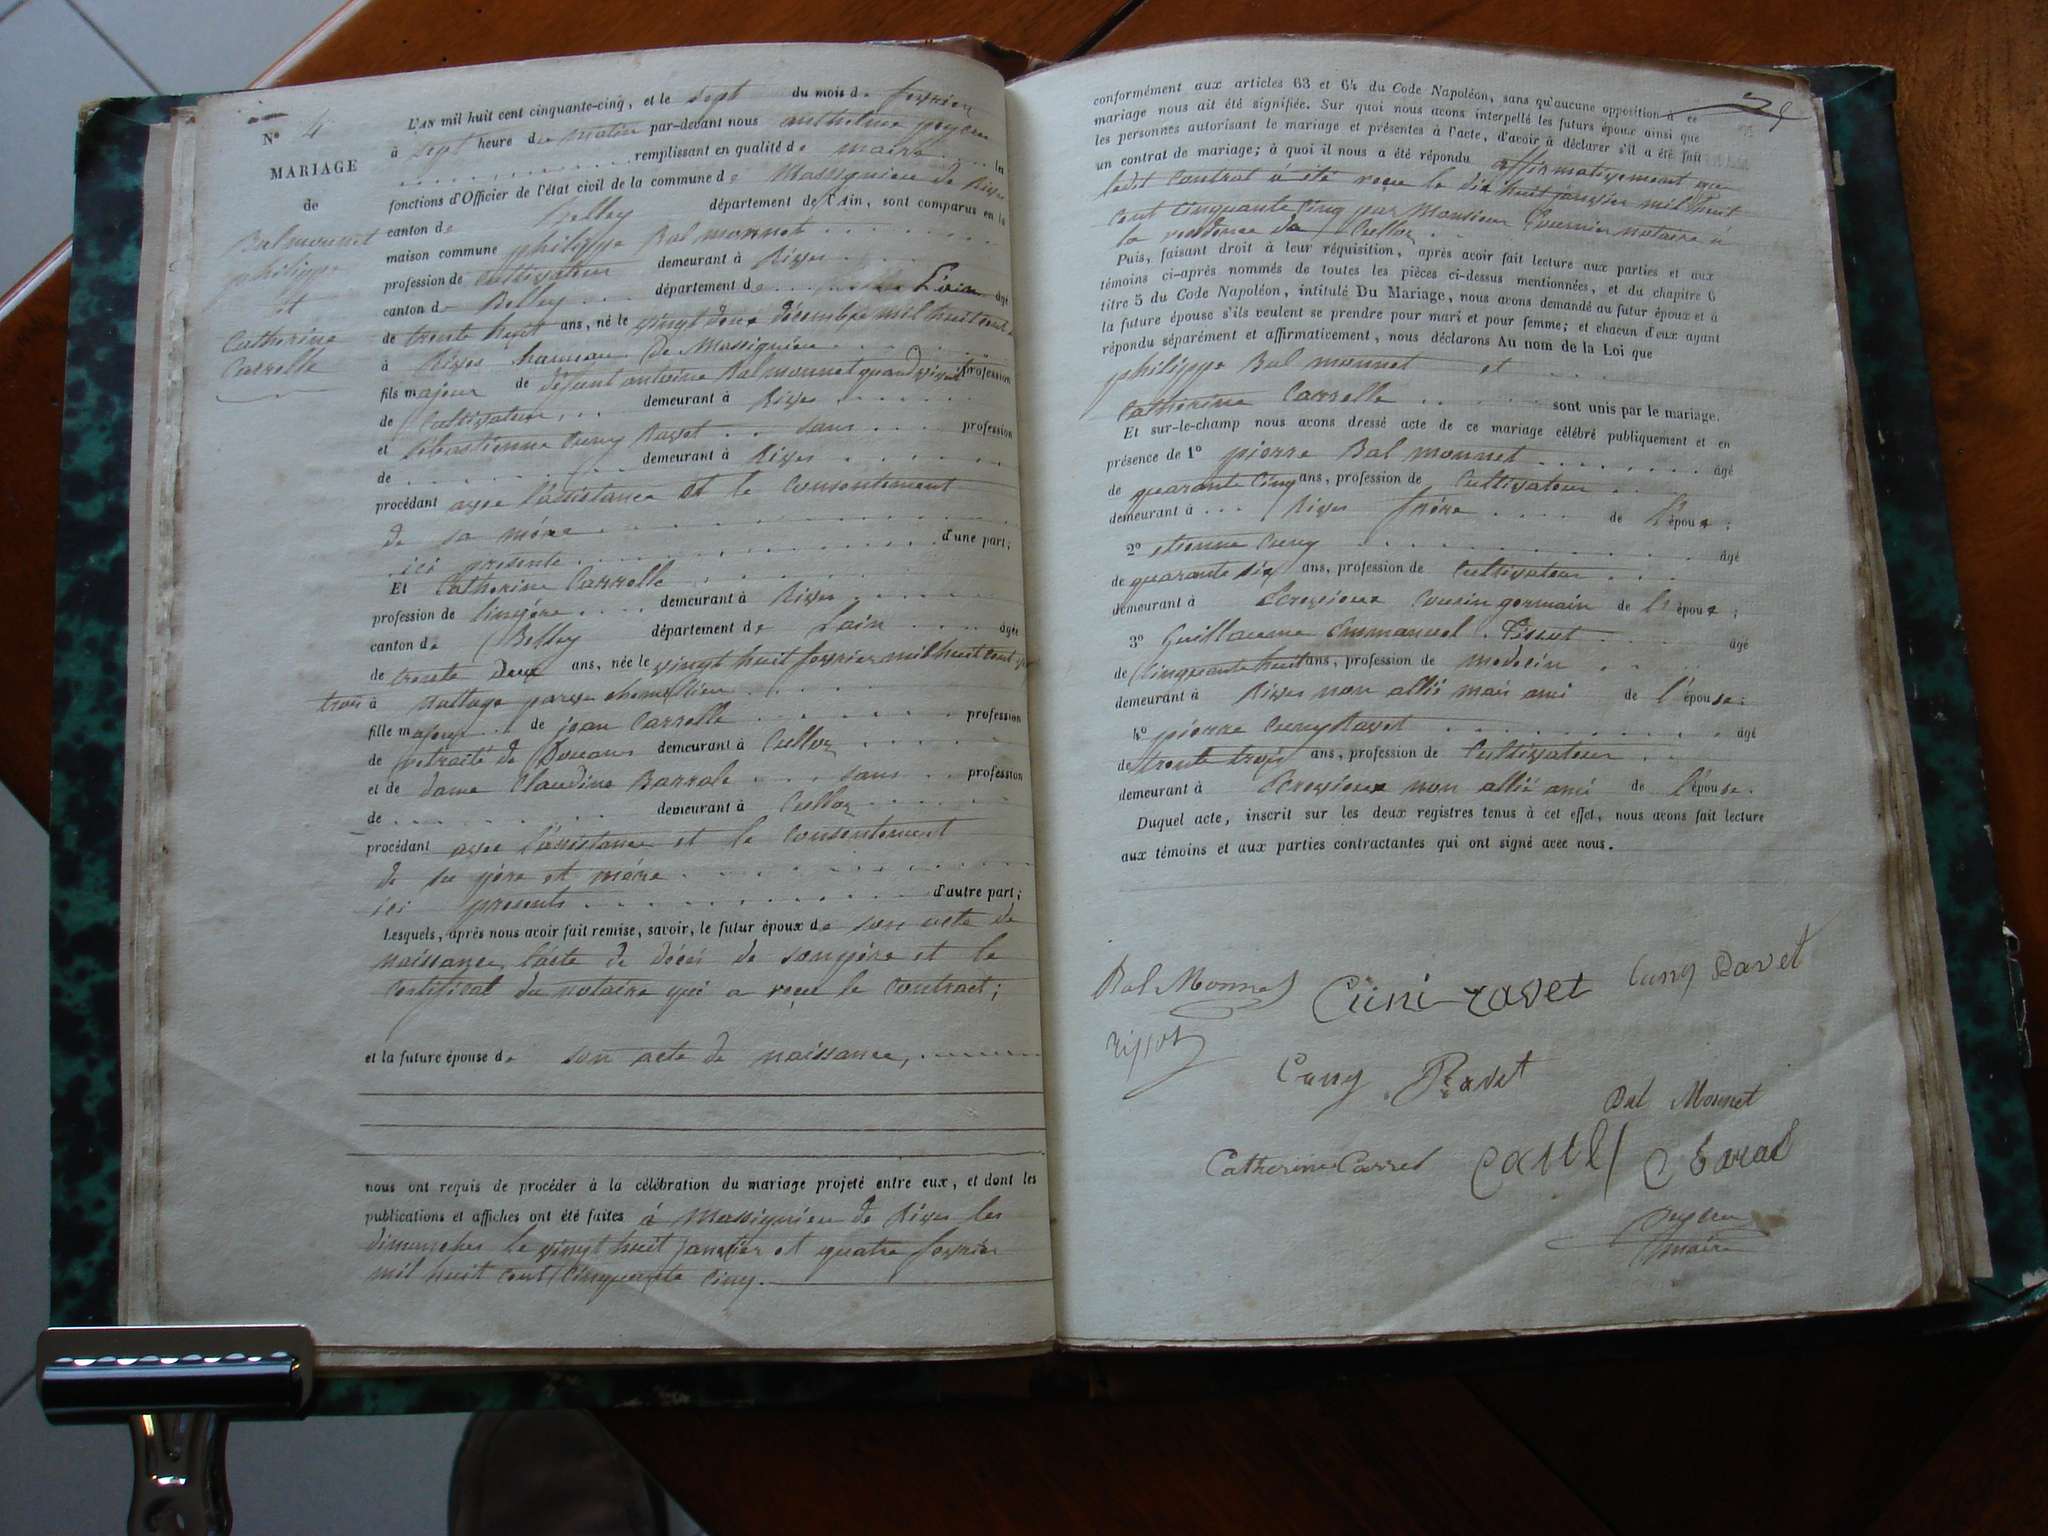 N° 4
MARIAGE
de
Bal monnet
philippe
et
Catherine
Carrelle
L'AN mil huit cent cinquante-cinq, et le sept du mois de fevrier
à sept heure du matin par-devant nous anthelme
remplissant en qualité de maire les
fonctions d'Officier de l'état civil de la commune de Massignieu de Rives
canton de Belley département de l'Ain, sont comparus en la
maison commune philippe Bal monnet
profession de cultivateur demeurant à Rives
canton de Belley département de L'ain âgé
de trente huit ans, né le vingt deux décembre mil huit cent
à Rives hameau de Massignieu
fils majeur de défunt antoine Bal monnet quand vivait profession
de Cultivateur demeurant à Rives
et sebastienne Cuny Ravet sans profession
de demeurant à Rives
procédant avec l'assistance et le consentement
de sa mére
ici presente d'une part;
Et Catherine Carrelle
profession de lingére demeurant à Rives
canton de Belley département de Lain âgée
de trente Deux ans, née le vingt huit fevrier mil huit cent vingt
trois à nattage parves
fille majeure de jean Carrelle profession
de retraité de Douanes demeurant à Culloz
et de dame Claudine Barrale sans profession
de demeurant à Culloz
procédant avec l'assistance et le consentement
de su pére et mére
ici presents d'autre part;
Lesquels, après nous avoir fait remise, savoir, le futur époux de son acte de
naissance, l'acte de décés de son pére et le
certificat du notaire qui a reçu le contract;
et la future épouse de son acte de naissance,
nous ont requis de procéder à la célébration du mariage projeté entre eux, et dont les
publications et affiches ont été faites à Massignieu de Rives les
dimanches le vingt huit janvier et quatre fevrier
mil huit cent cinquante cinq.
conformément aux articles 63 et 64 du Code Napoléon, sans qu'aucune opposition à ce
mariage nous ait été signifiée. Sur quoi nous avons interpellé les futurs époux ainsi que
les personnes autorisant le mariage et présentes à l'acte, d'avoir à déclarer s'il a été fait
un contrat de mariage; à quoi il nous a été répondu affirmativement que
ledit contrat à été reçu le dix huit janvier mil huit
cent cinquante cinq par Monsieur Fournier notaire à
la residence de Culloz
Puis, faisant droit à leur réquisition, après avoir fait lecture aux parties et aux
témoins ci-après nommés de toutes les pièces ci-dessus mentionnées, et du chapitre 6
titre 5 du Code Napoléon, intitulé Du Mariage, nous avons demandé au futur époux et à
la future épouse s'ils veulent se prendre pour mari et pour femme; et chacun d'eux ayant
répondu séparément et affirmativement, nous déclarons Au nom de la Loi que
philippe Bal monnet et
Catherine Carrelle sont unis par le mariage.
Et sur-le-champ nous avons dressé acte de ce mariage célébré publiquement et en
présence de 1° pierre Bal monnet âgé
de quarante cinq ans, profession de Cultivateur
demeurant à Rives frére de l'époux;
2° etienne Cuny âgé
de quarante six ans, profession de Cultivateur
demeurant à Ecrivieux Cousin germain de l'époux;
3° Guillaume Emmanuel Tissot âgé
de Cinquante huit ans, profession de medecin
demeurant à Rives non allié mais ami de l'épouse;
4° pierre Cuny Ravet âgé
de trente trois ans, profession de Cultivateur
demeurant à Ecrivieux non allié ami de l'épouse.
Duquel acte, inscrit sur les deux registres tenus à cet effet, nous avons fait lecture
aux témoins et aux parties contractantes qui ont signé avec nous.
Bal Monnet Cuni-ravet Cuny Ravet
Tissot
Cuny Ravet
Bal Monnet
Catherine Carrel
maire